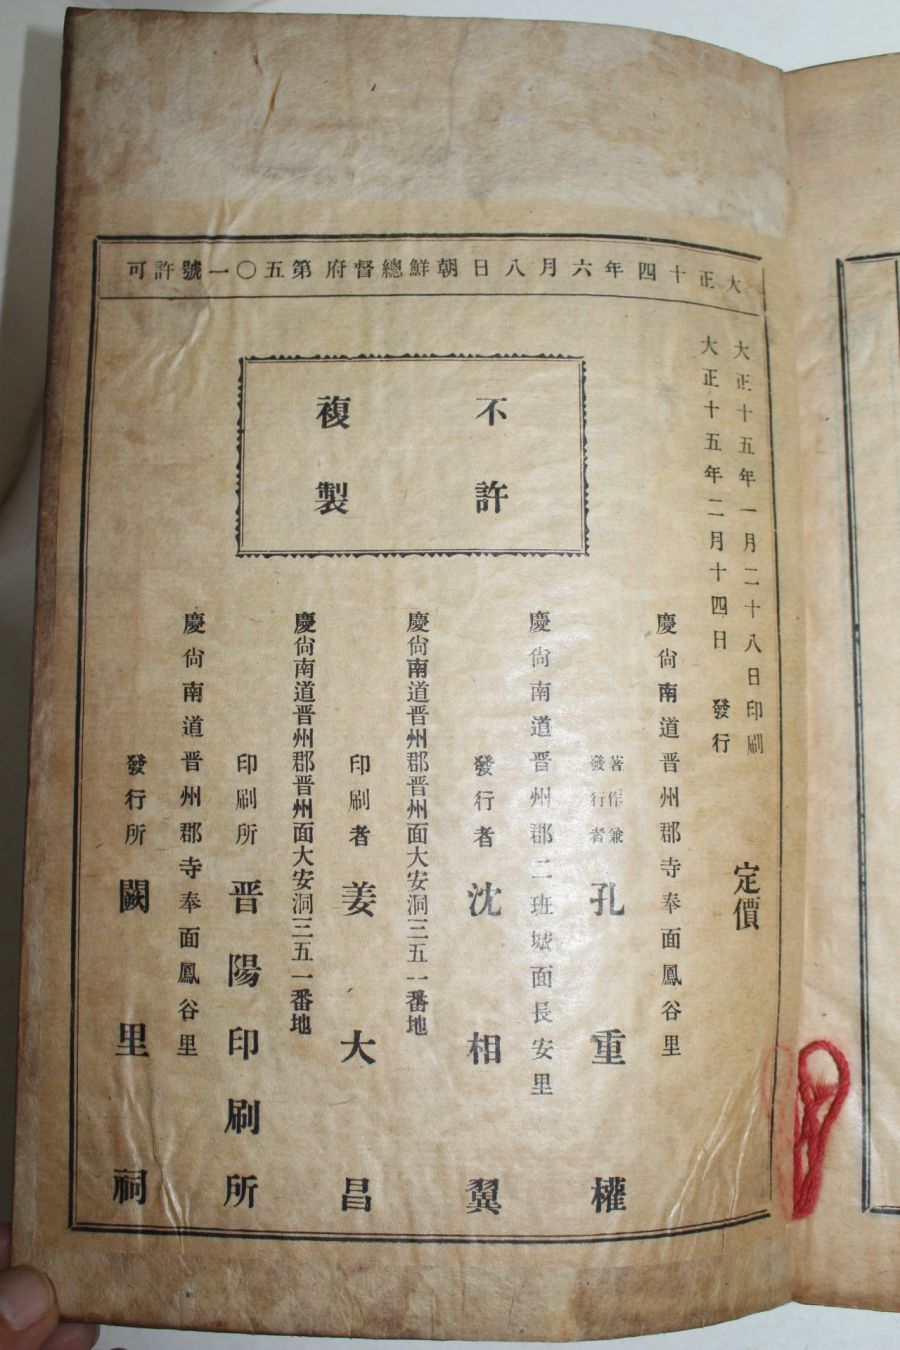 大正十四年六月八日朝鮮總督府第五〇一號許可
大正十五年一月二十八日印刷
大正十五年二月十四日發行
定價
不許
複製
慶尙南道晋州郡寺奉面鳳谷里
著作兼
發行者
孔重權
慶尙南道晋州郡二班城面長安里
發行者 沈相翼
慶尙南道晋州郡晋州面大安洞三五一番地
印刷者 姜大昌
慶尙南道晋州郡晋州面大安洞三五一番地
印刷所 晋陽印刷所
慶尙南道晋州郡寺奉面鳳谷里
發行所 闕里祠